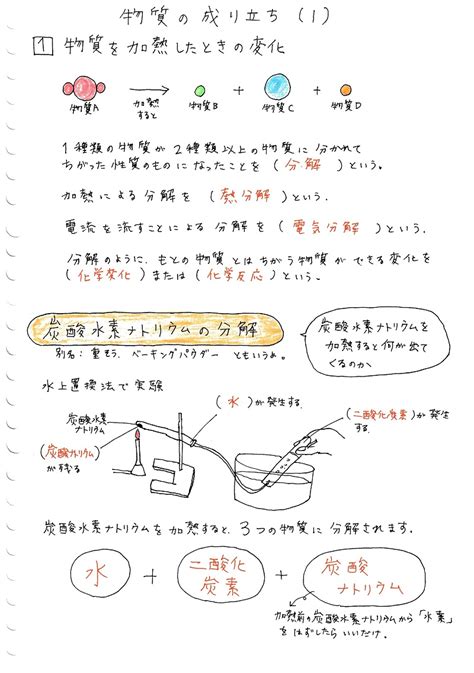 物質の成り立ち(1)
1 物質を加熱したときの変化
物質A 加熱すると 物質B + 物質C + 物質D
1種類の物質が2種類以上の物質に分かれて
ちがった性質のものになったことを(分解)という。
加熱による分解を(熱分解)という。
電流を流すことによる分解を(電気分解)という。
分解のように、もとの物質とはちがう物質ができる変化を
(化学変化)または(化学反応)という。
炭酸水素ナトリウムの分解
別名:重そう、ベーキングパウダー ともいうよ。
炭酸水素ナトリウムを
加熱すると何が出て
くるのか
水上置換法で実験
炭酸水素
ナトリウム
(水)が発生する。
(二酸化炭素)が発生
する。
(炭酸ナトリウム)
ができる
炭酸水素ナトリウムを加熱すると、3つの物質に分解されます。
水 + 二酸化炭素 + 炭酸ナトリウム
加熱前の炭酸水素ナトリウムから「水素」
をはずしたらいいだけ。